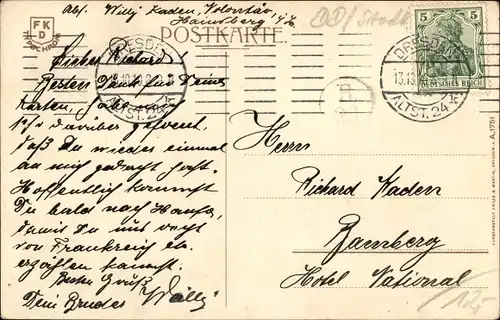 Abs. Willy Kaden, Volontär,
Hainsberg i/Sa.
FK
D
POSTKARTE.
DRESDEN
ALTST. 24
5 5
DEUTSCHES REICH
DRESDEN
ALTST. 24
Lieber Richard!
Besten Dank für Deine
Karten, habe mich
so darüber gefreut,
daß Du wieder einmal
an mich gedacht hast.
Hoffentlich kommst
Du bald nach Hause,
damit Du uns recht
von Frankreich etc.
erzählen kannst.
Besten Gruß
Dein Bruder Willy
Herrn
Richard Kaden
Bamberg
Hotel National
A. 1751